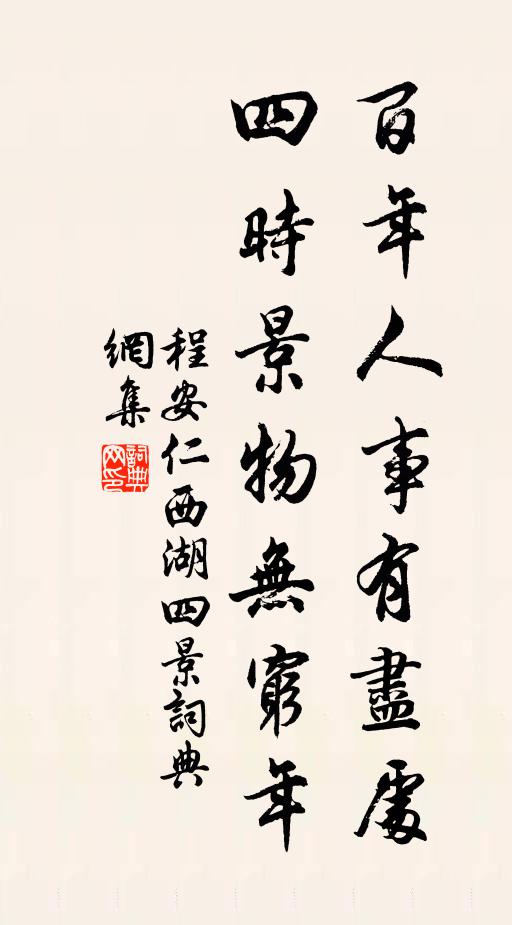 百年人事有盡處
四時景物無窮年
程安仁西湖四景詞典
網集
詞典
网印